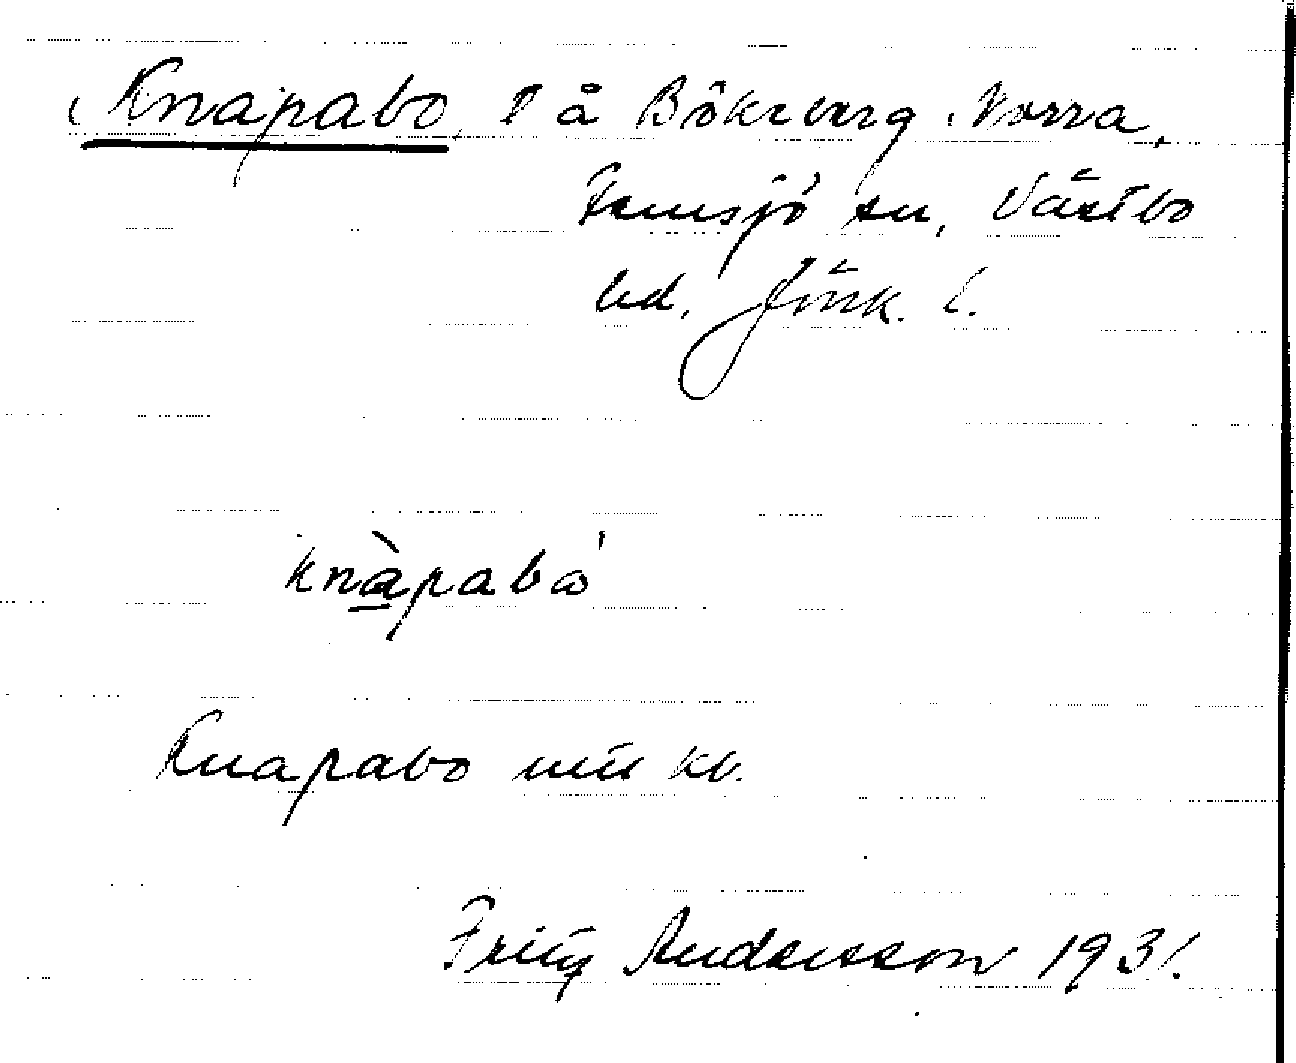 Knapabo, T å Bökeberg Norra,
Femsjö sn, Västbo
hd, Jönk. l.
knàpabo
Knapabo kb.
Fritz Andersson 1931.